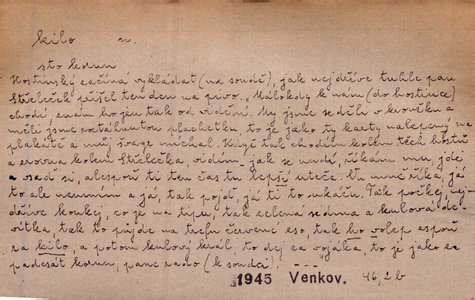 kilo n.
sto korun
Hostinský začíná vykládat (na soudě), jak nejdříve tuhle pan
Stěleček přišel ten den na pivo. "Málokdy k nám (do hostince)
chodí, znám ho jen tak od vidění. My jsme seděli v koutku a
měli jsme roztáhnutou plachetku, to je jako ty karty nalepený na
plakátě a můj švagr míchal. Když tak chodím kolem těch hostů
a zrovna kolem Stělečka, vidím, jak se nudí, říkám mu, jdi
a vsaď si, alespoň ti ten čas tu lepší uteče. On mně říká, já
to ale neumím a já, tak pojď, já ti to ukážu. Tak počkej, nej-
dříve koukej, co je na tipu, tak zelená sedma a kulová de-
vítka, tak to půjde na trefu červené eso, tak ho volej aspoň
za kilo, a potom kulový král, to dej za vojáka, to je jako za
padesát korun, pane rado (k soudci). —
1945 Venkov. 46, 2 b